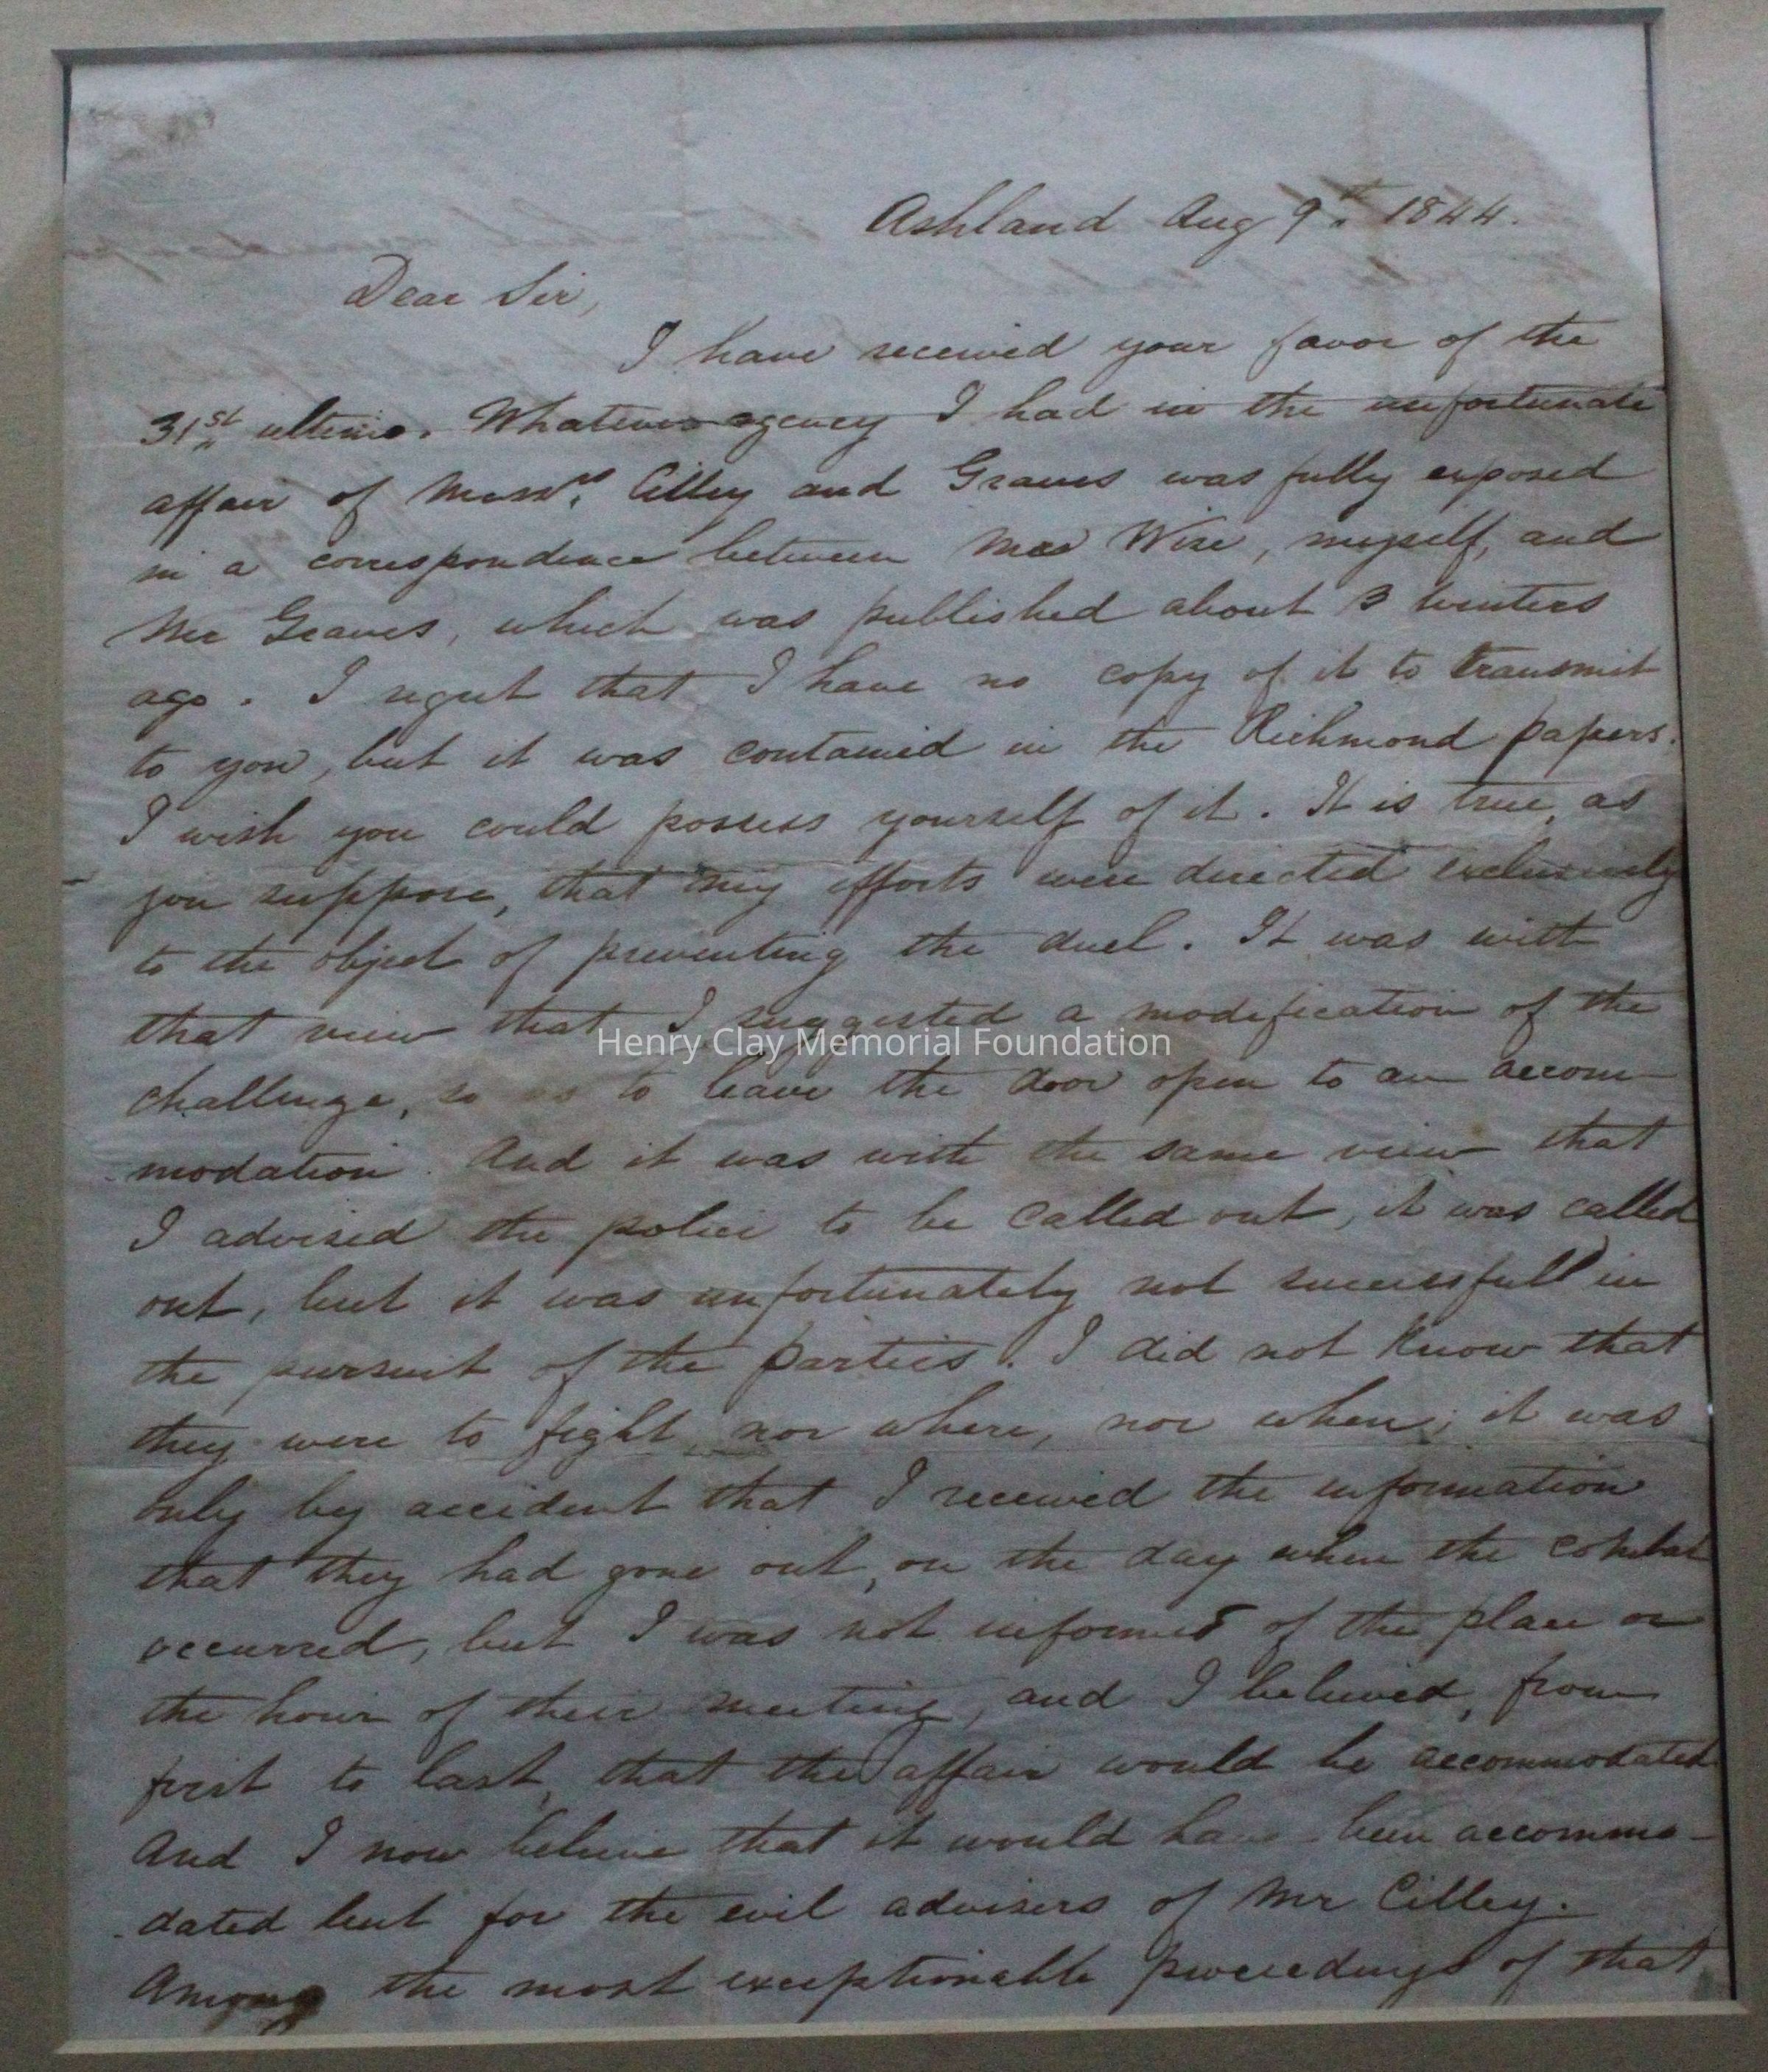 Ashland Aug 9th 1844.
Dear Sir,
I have received your favor of the
31st ultimo. Whatever agency I had in the unfortunate
affair of Messrs. Cilley and Graves was fully exposed
in a correspondence between Mr Wise, myself, and
Mr Graves, which was published about 3 winters
ago. I regret that I have no copy of it to transmit
to you, but it was contained in the Richmond papers.
I wish you could possess yourself of it. It is true, as
you suppose, that my efforts were directed exclusively
to the object of preventing the duel. It was with
that view that I suggested a modification of the
Henry Clay Memorial Foundation
challenge, so as to leave the door open to an accom-
modation. And it was with the same view that
I advised the police to be called out, it was called
out, but it was unfortunately not successfull in
the pursuit of the parties. I did not know that
they were to fight, nor where, nor when; it was
only by accident that I received the information
that they had gone out, on the day when the combat
occurred, but I was not informed of the place or
the hour of their meeting, and I believed, from
first to last, that the affair would be accommodated
And I now believe that it would have been accommo-
dated but for the evil advisers of Mr Cilley.
Among the most exceptionable proceedings of that